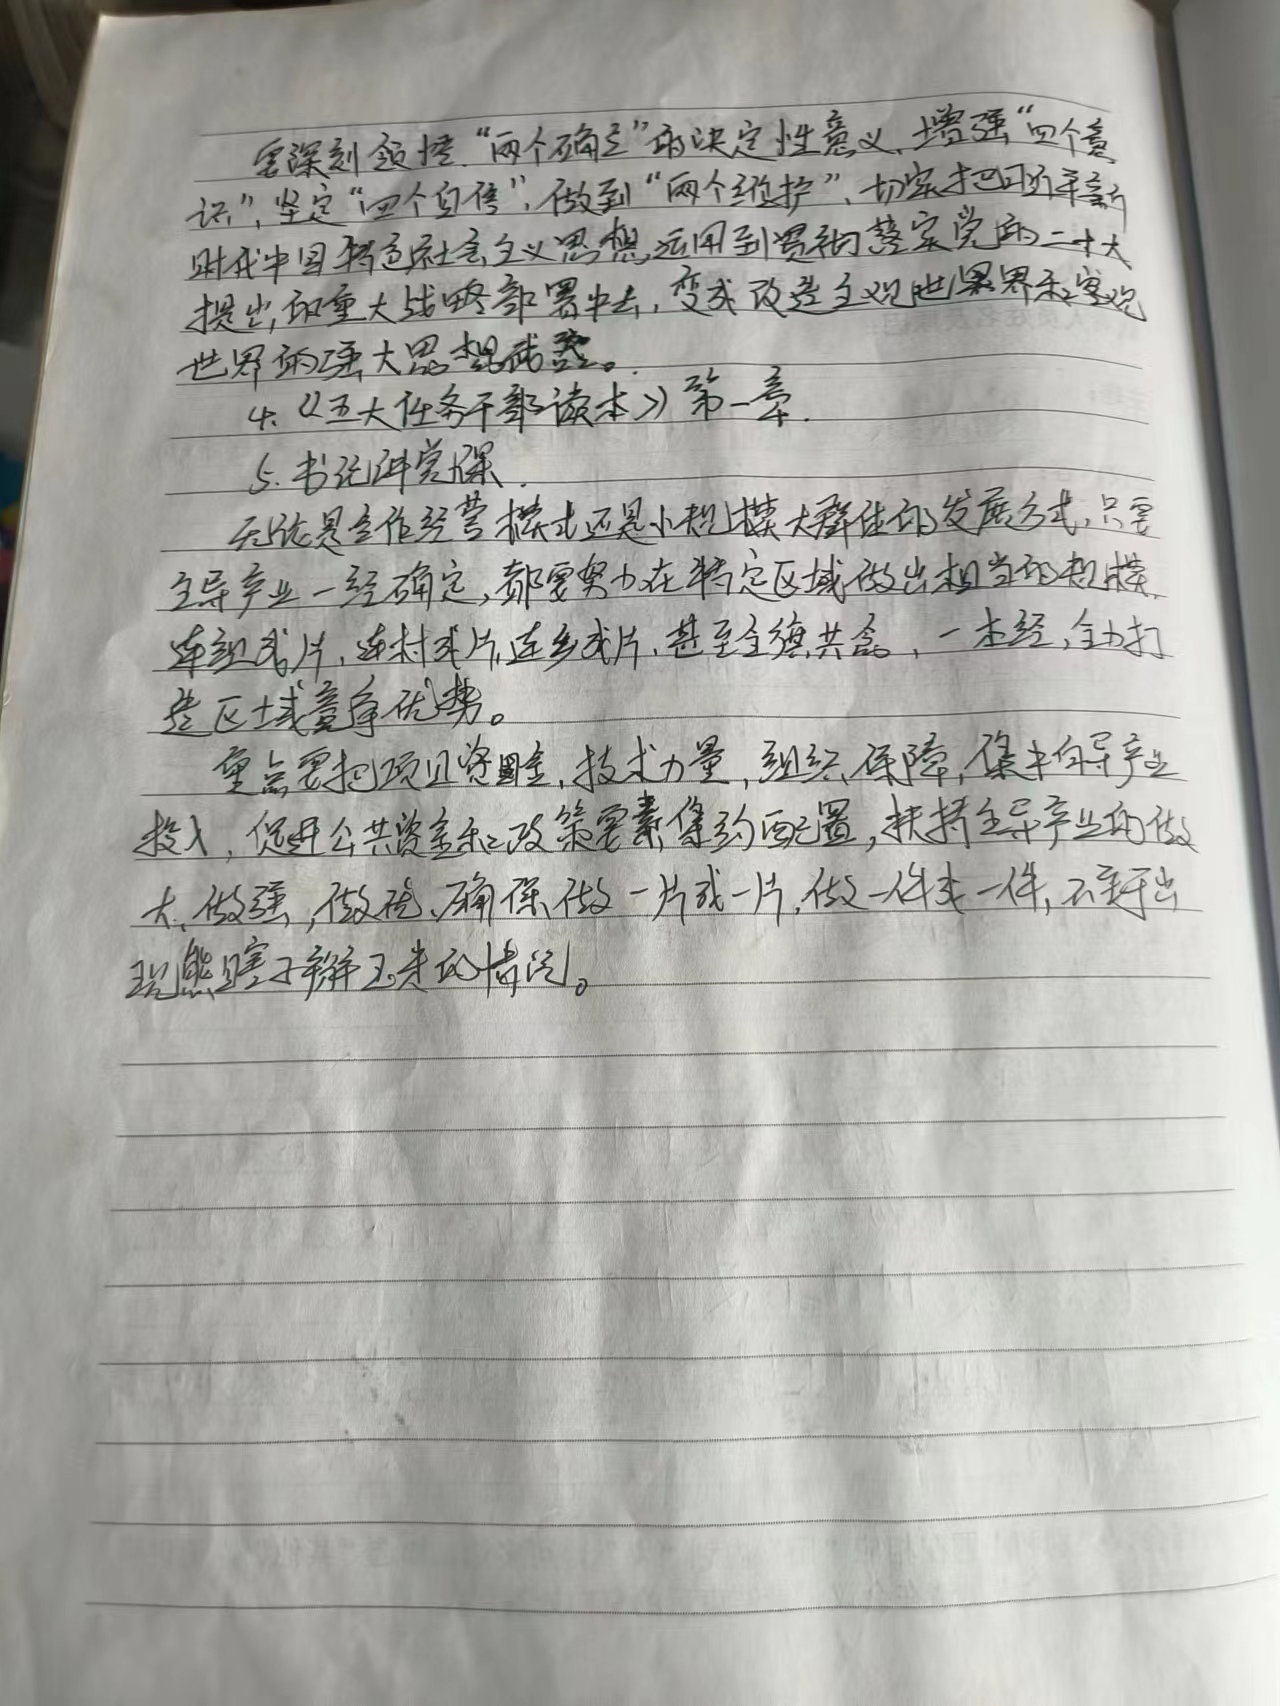 要深刻领悟“两个确立”的决定性意义，增强“四个意
识”，坚定“四个自信”，做到“两个维护”，切实把习近平新
时代中国特色社会主义思想运用到贯彻落实党的二十大
提出的重大战略部署中去，变成改造主观世界和客观
世界的强大思想武器。
4.《五大任务干部读本》第一章.
5.书记讲党课.
无论是合作经营模式还是小规模大群体的发展方式，只要
主导产业一经确定，都要努力在特定区域做出相当的规模，
连组成片，连村成片，连乡成片，甚至全旗共念，一本经，全力打
造区域竞争优势。
重点要把项目资金，技术力量，组织保障，集中向导产业
投入，促进公共资金和政策要素集约配置，扶持主导产业的做
大、做强，做优、确保做一片成一片，做一件成一件，不要出
现熊瞎子掰玉米的情况。